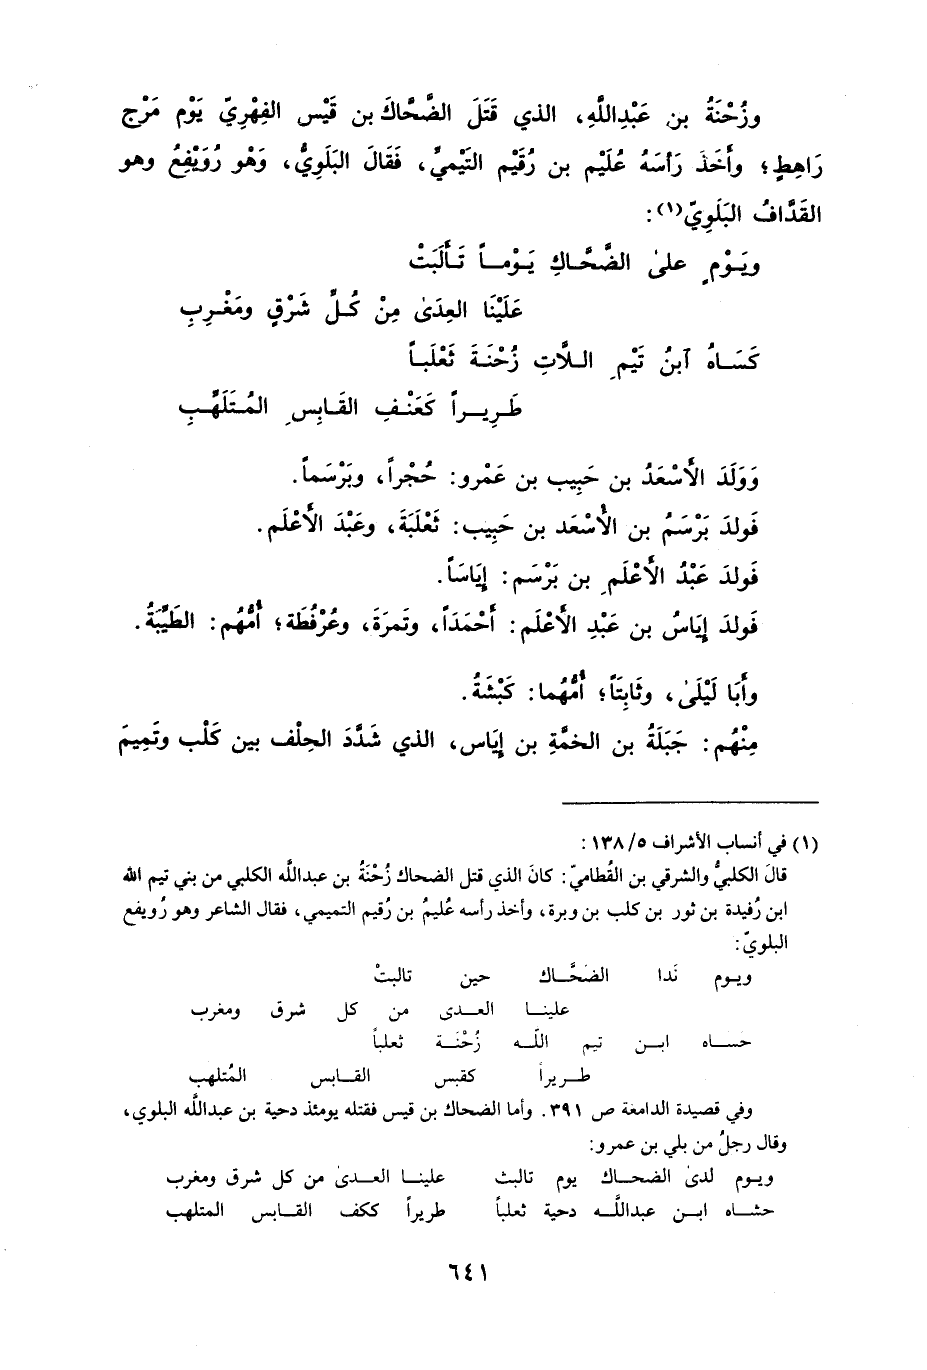 وزُحْنَةُ بن عَبْدِاللَّهِ، الذي قَتَلَ الضَّحَّاكَ بن قَيْس الفِهْرِيّ يَوْم مَرْج
رَاهِطٍ؛ وأَخَذَ رَأسَهُ عُلَيْم بن رُقَيْم التَيْميُّ، فَقَالَ البَلَوِيُّ، وَهْو رُوَيْفِعُ وهو
القَذَّافُ البَلَوِيّ(١):
ويَـوْمٍ علىٰ الضَّحَّاكِ يَـوْمـاً تَـأَلَبَتْ
عَلَيْنَا العِدَىٰ مِنْ كُـلِّ شَرْقٍ ومَغْـرِبِ
كَسَـاهُ آبنُ تَيْمِ الـلَّاتِ زُحْنَـةَ ثَعْلَبـاً
طَـرِيـراً كَعَنْـفِ القَـابِسِ المُـتَلَهِّـبِ
وَوَلَدَ الأَسْعَدُ بن حَبِيب بن عَمْرو: حُجْراً، وبَرْسَماً.
فَولدَ بَرْسَمُ بن الأَسْعَد بن حَبِيب: ثَعْلَبَةَ، وعَبْدَ الأَعْلَم.
فَولدَ عَبْدُ الأَعْلَمِ بن بَرْسَم: إيَاسَاً.
فَولدَ إيَاسُ بن عَبْدِ الأَعْلَم: أحْمَدَاً، وتَمرَةَ، وعُرْفُطَة؛ أُمُّهُم: الطَيِّبَةُ.
وأَبَا لَيْلَىٰ، وثَابِتَاً؛ أُمُّهُما: كَبْشَةُ.
مِنْهُم: جَبَلَةُ بن الخمَّةِ بن إيَاس، الذي شَدَّدَ الحِلْف بين كَلْب وتَمِيمَ
(١) في أنساب الأشراف ١٣٨/٥:
قالَ الكلبيُّ والشرقي بن القُطاميّ: كانَ الذي قتل الضحاك زُحْنَةُ بن عبدالله الكلبي من بني تيم الله
ابن رُفيدة بن ثور بن كلب بن وبرة، وأخذ رأسه عُليمُ بن رُقيم التميمي، فقال الشاعر وهو رُويفع
البلويّ:
ويـوم نَدا الضحَّـاك حين تالبتْ
علينـا العـدى من كل شرق ومغرب
حسـاه ابـن تيم اللّـه زُحْنَـة ثعلباً
طـريراً كقبس القـابس المُتلهب
وفي قصيدة الدامغة ص ٣٩١. وأما الضحاك بن قيس فقتله يومئذ دحية بن عبدالله البلوي،
وقال رجلُ من بلي بن عمرو:
ويـوم لدىٰ الضحـاك يوم تالبث علينـا العـدىٰ من كل شرق ومغرب
حشـاه ابـن عبداللَّـه دحية ثعلباً طريراً ككف القـابس المتلهب
٦٤١